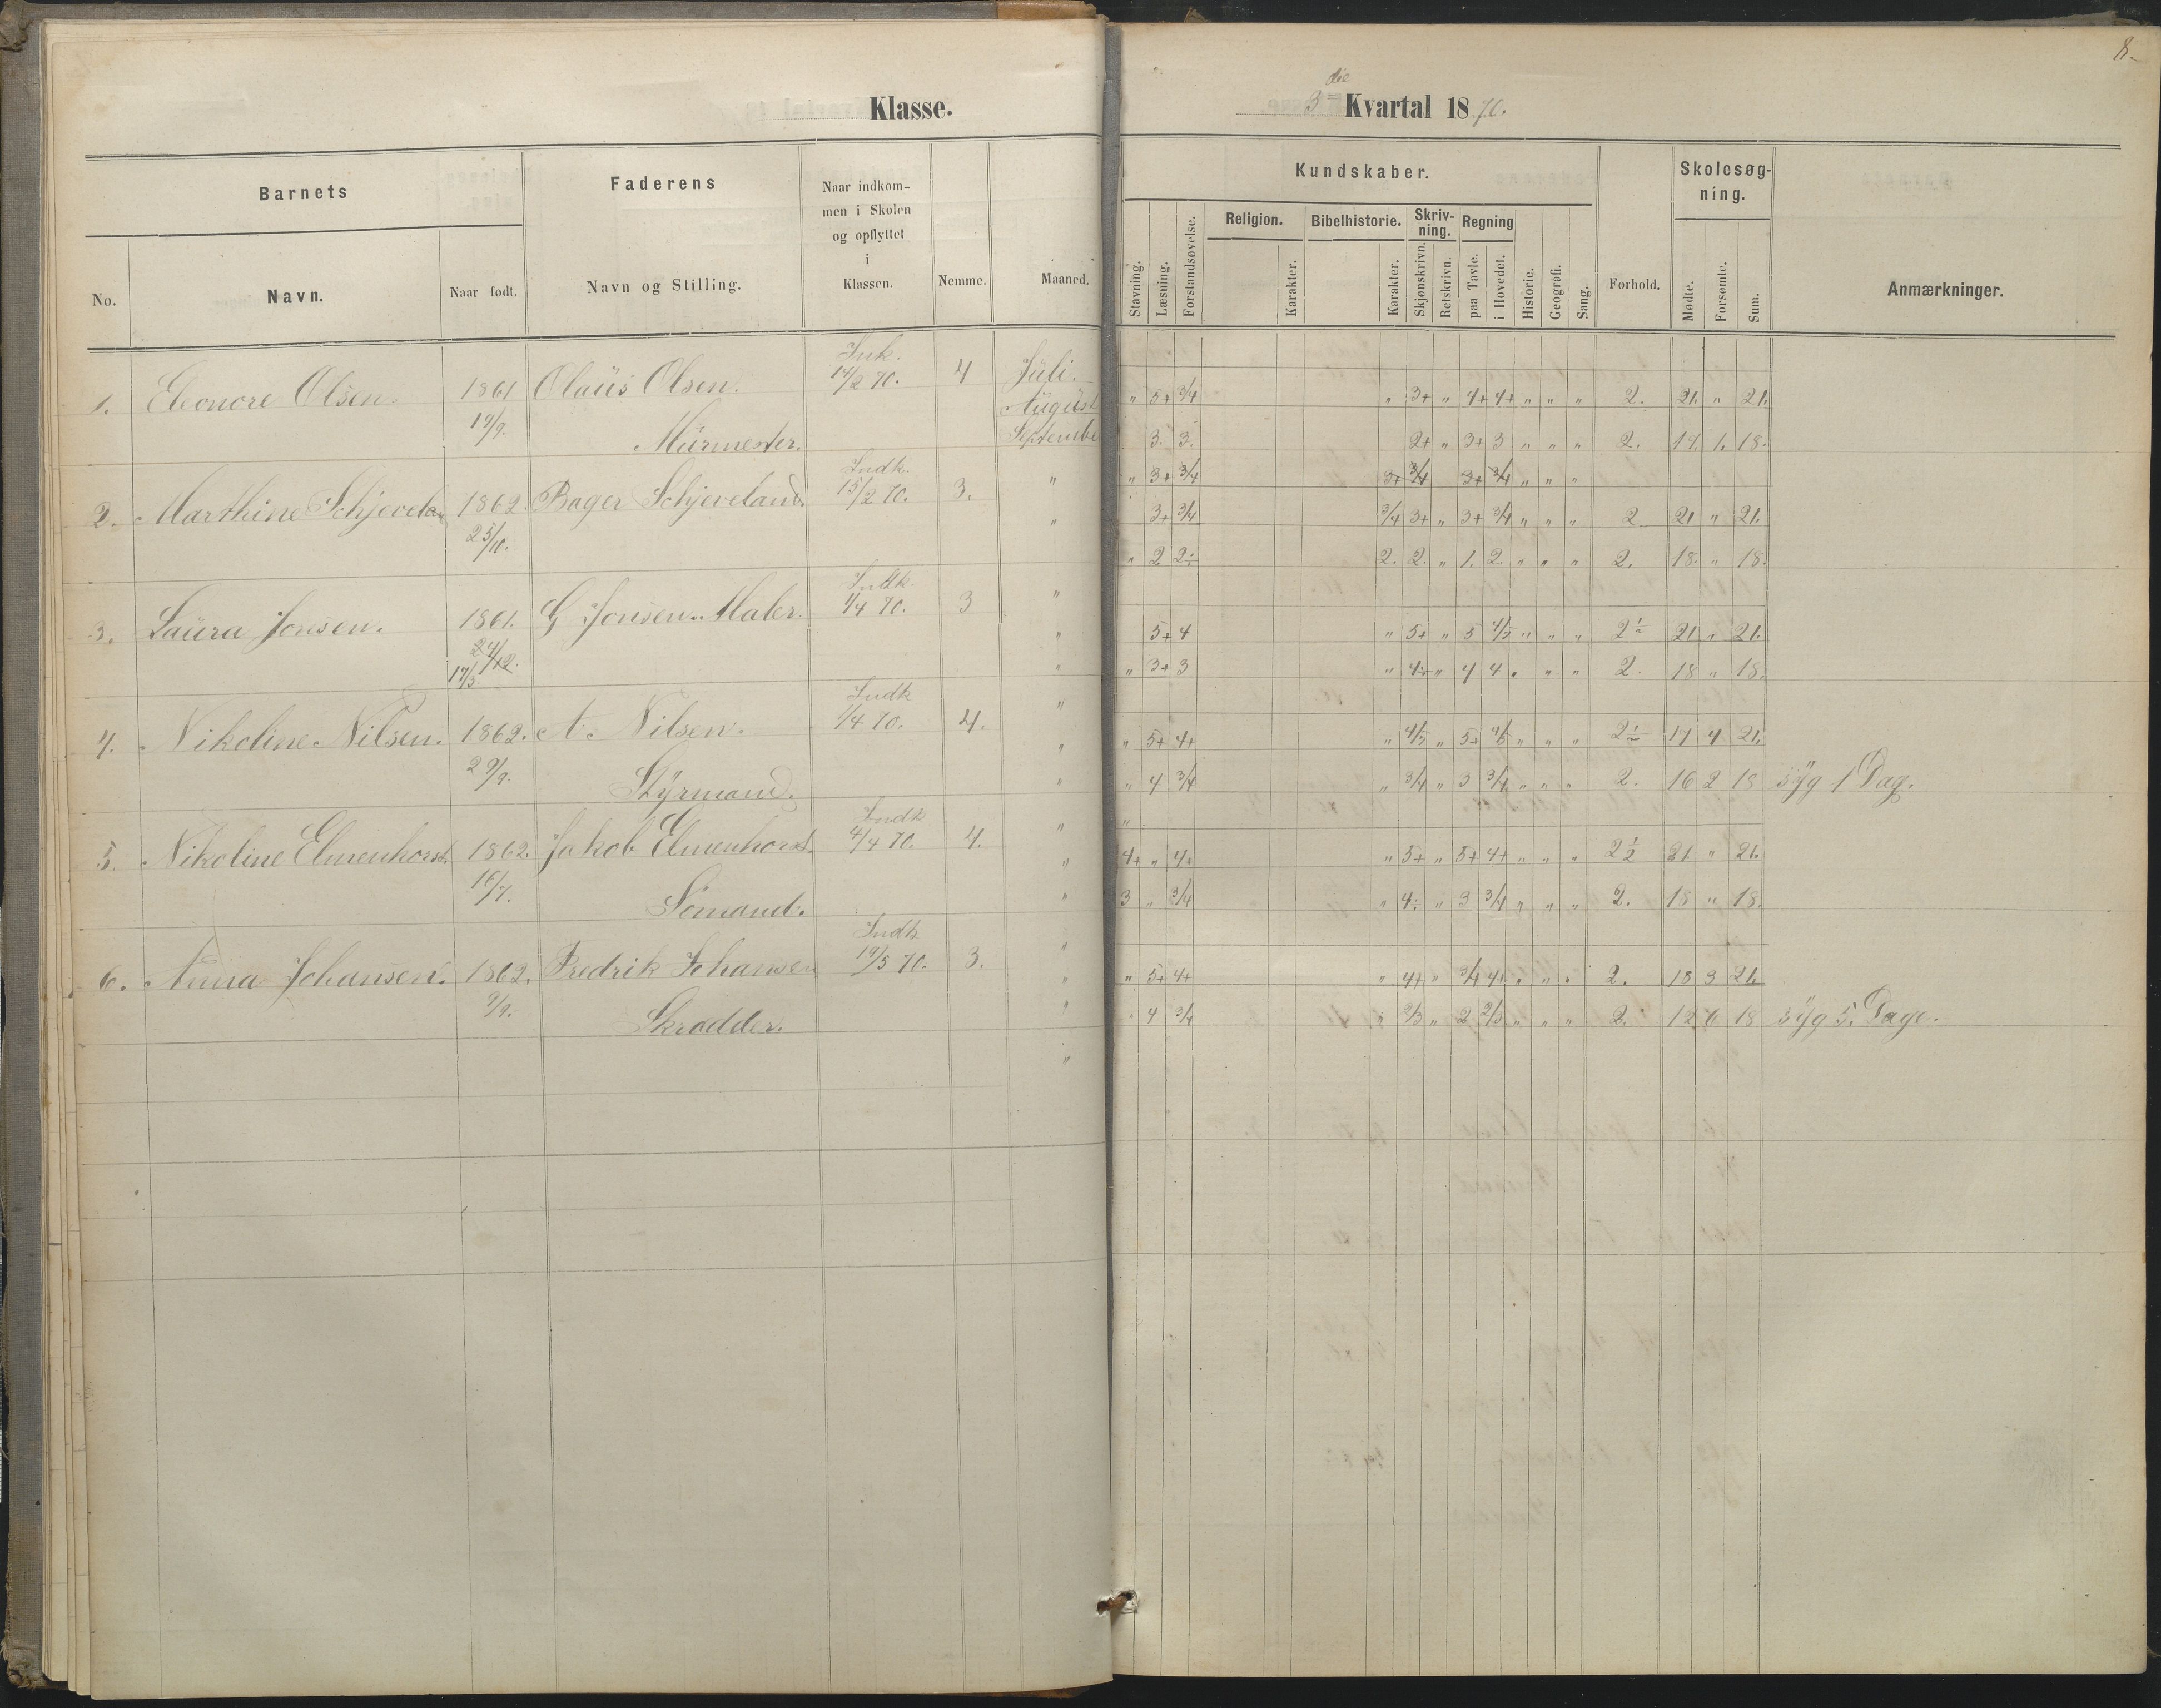 8.
Klasse.
3die Kvartal 1870.
Barnets
Faderens
Naar indkommen i Skolen og opflyttet i Klassen.
Nemme.
Maaned.
No.
Navn.
Naar født.
Navn og Stilling.
Kundskaber.
Skolesøgning.
Stavning.
Læsning.
Forstandsøvelse.
Religion.
Karakter.
Bibelhistorie.
Karakter.
Skrivning.
Skjønskrivn.
Retskrivn.
Regning
paa Tavle.
i Hovedet.
Historie.
Geografi.
Sang.
Forhold.
Mødte.
Forsømte.
Sum.
Anmærkninger.
1. Eleonore Olsen. 1861 Olaüs Olsen. Ink. 14/2 70. 4 Jüli.
" 5+ 3/4 " 3+ " 4+ 4+ " " " 2. 21. " 21.
19/9. Mürmester. August
September
3. 3. 2+ " 3+ 3 " " " 2. 17. 1. 18.
" 3+ 3/4 3+ 3/4 3+ 3/4 " " "
2. Marthine Schjevelan 1862. Bager Schjeveland. Indk. 15/2 70. 3. "
3+ 3/4 3/4 3+ " 3+ 3/4 " " " 2 21 " 21.
25/10. "
" 2 2. 2. 2. " 1. 2. " " " 2. 18. " 18.
3. Laüra Jonsen. 1861. G Jonsen. Maler. Indk. 1/4 70. 3 "
5+ 4 " 5+ " 5 4/5 " " " 2 21 " 21.
24/12. 17/3. "
" 3+ 3 " 4 " 4 4 " " " 2. 18 " 18.
4. Nikoline Nilsen. 1862. A. Nilsen. Indk 1/4 70. 4. "
" 5+ 4+ " 4/5 " 5+ 4/5 " " " 2 17 4 21.
29/9. Styrmand. "
" 4 3/4 " 3/4 " 3 3/4 " " " 2. 16 2 18 syg 1 Dag.
5. Nikoline Elmenhorst. 1862. Jakob Elmenhorst. Indk 4/4 70. 4. "
4+ " 4+ " 5+ " 5+ 4+ " " " 2 1/2 21 " 21.
16/7. Sømand. "
3 " 3/4 " 4 " 3 3/4 " " " 2. 18 " 18.
6. Anna Johansen. 1862. Fredrik Johansen Indk 19/5 70. 3. "
" 5+ 4+ " 4+ " 3/4 4+ " " " 2. 18 3 21.
9/9. Skrædder. "
4 3/4 " 2/3 " 2 2/3 " " " 2. 12 6 18 syg 5. Dage.
"